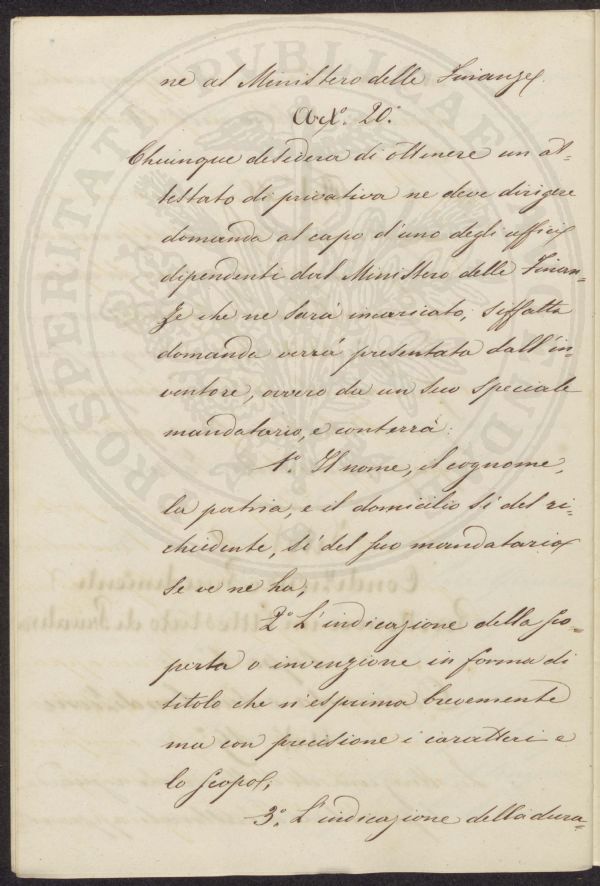 ne al Ministero delle Finanze.
Art.° 20.°
Chiunque desidera di ottenere un at-
testato di privativa ne deve dirigere
domanda al capo d'uno degli ufficj
dipendenti dal Ministero delle Finan-
ze che ne sarà incaricato; siffatta
domanda verrà presentata dall'in-
ventore, ovvero da un suo speciale
mandatario, e conterrà:
1.° Il nome, il cognome,
la patria, e il domicilio sì del ri-
chiedente, sì del suo mandatario
se ve ne ha;
2.° L'indicazione della sco-
perta o invenzione in forma di
titolo che n'esprima brevemente
ma con precisione i caratteri e
lo scopo;
3.° L'indicazione della dura-
PROSPERITATI PUBLICAE AUGENDAE